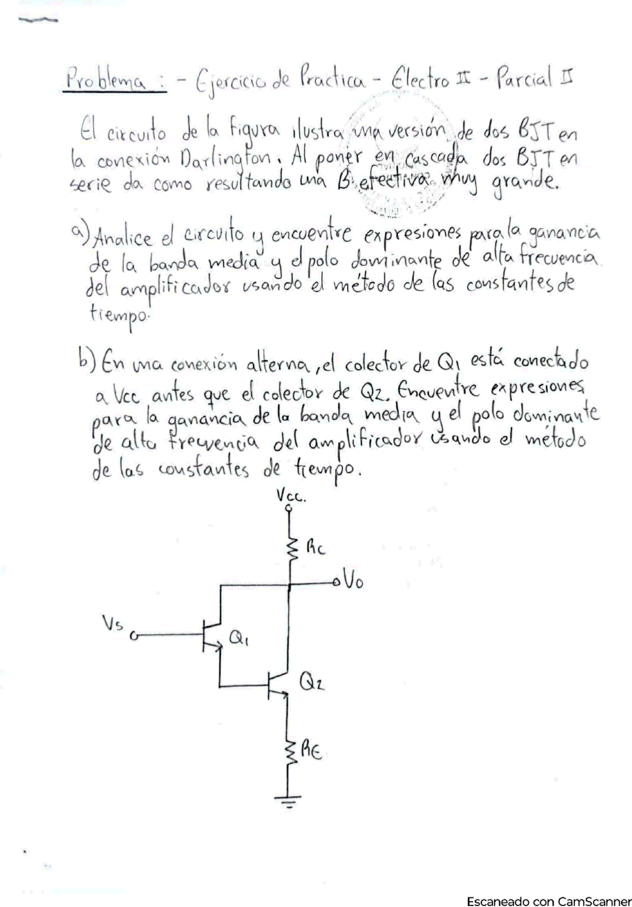 Problema : - Ejercicio de Practica - Electro II - Parcial II
El circuito de la figura ilustra una versión de dos BJT en
la conexión Darlington. Al poner en cascada dos BJT en
serie da como resultando una B efectiva muy grande.
a) Analice el circuito y encuentre expresiones para la ganancia
de la banda media y el polo dominante de alta frecuencia
del amplificador usando el método de las constantes de
tiempo.
b) En una conexión alterna, el colector de Q1 está conectado
a Vcc antes que el colector de Q2. Encuentre expresiones
para la ganancia de la banda media y el polo dominante
de alta frecuencia del amplificador usando el método
de las constantes de tiempo.
Vcc.
Rc
Vo
Vs
Q1
Q2
RE
Escaneado con CamScanner